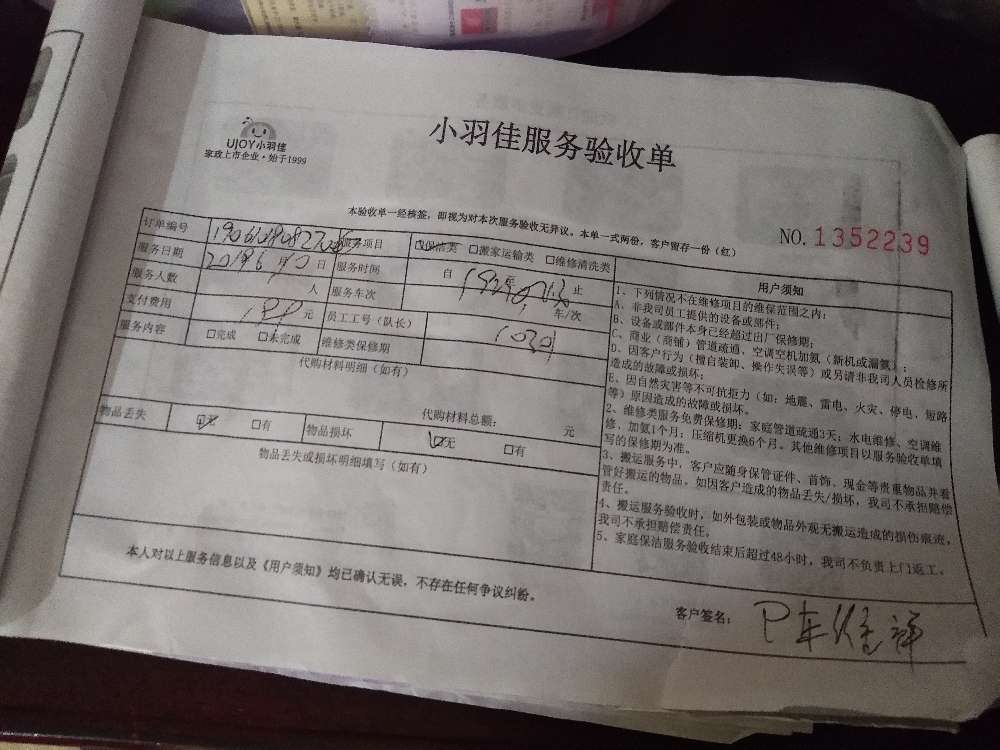 UJOY小羽佳
家政上市企业·始于1999
小羽佳服务验收单
本验收单一经核签，即视为对本次服务验收无异议。本单一式两份，客户留存一份（红）
NO. 1352239
订单编号
服务项目 保洁类 □搬家运输类 □维修清洗类
服务日期 2019年6月10日 服务时间 自 至 止
服务人数 人 服务车次 车/次
支付费用 元 员工工号（队长）
服务内容 □完成 □未完成 维修类保修期
代购材料明细（如有）
代购材料总额： 元
物品丢失 □无 □有 物品损坏 □无 □有
物品丢失或损坏明细填写（如有）
用户须知
1、下列情况不在维修项目的维保范围之内：
A、非我司员工提供的设备或部件；
B、设备或部件本身已经超过出厂保修期；
C、商业（商铺）管道疏通、空调空机加氨（新机或漏氨）；
D、因客户行为（擅自装卸、操作失误等）或另请非我司人员检修所
造成的故障或损坏；
E、因自然灾害等不可抗拒力（如：地震、雷电、火灾、停电、短路
等）原因造成的故障或损坏。
2、维修类服务免费保修期：家庭管道疏通3天；水电维修、空调维
修、加氨1个月；压缩机更换6个月。其他维修项目以服务验收单填
写的保修期为准。
3、搬运服务中，客户应随身保管证件、首饰、现金等贵重物品并看
管好搬运的物品，如因客户造成的物品丢失/损坏，我司不承担赔偿
责任。
4、搬运服务验收时，如外包装或物品外观无搬运造成的损伤痕迹，
我司不承担赔偿责任。
5、家庭保洁服务验收结束后超过48小时，我司不负责上门返工。
本人对以上服务信息以及《用户须知》均已确认无误，不存在任何争议纠纷。
客户签名：